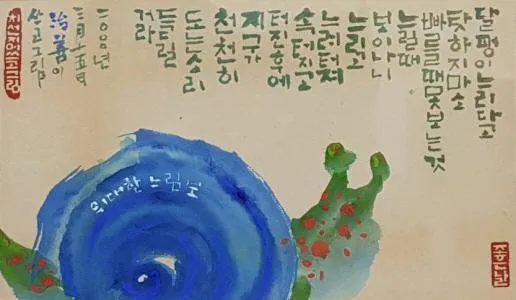 달팽이 느리다고
탓하지 마소
빠를 때 못 보는 것
느릴 때
보이나니
느리고
느려 터져
속 터지고
터진 후에
지구가
천천히
도는 소리
거라
三月十五日
쓰고 그림
위대한 느림보
좋은날